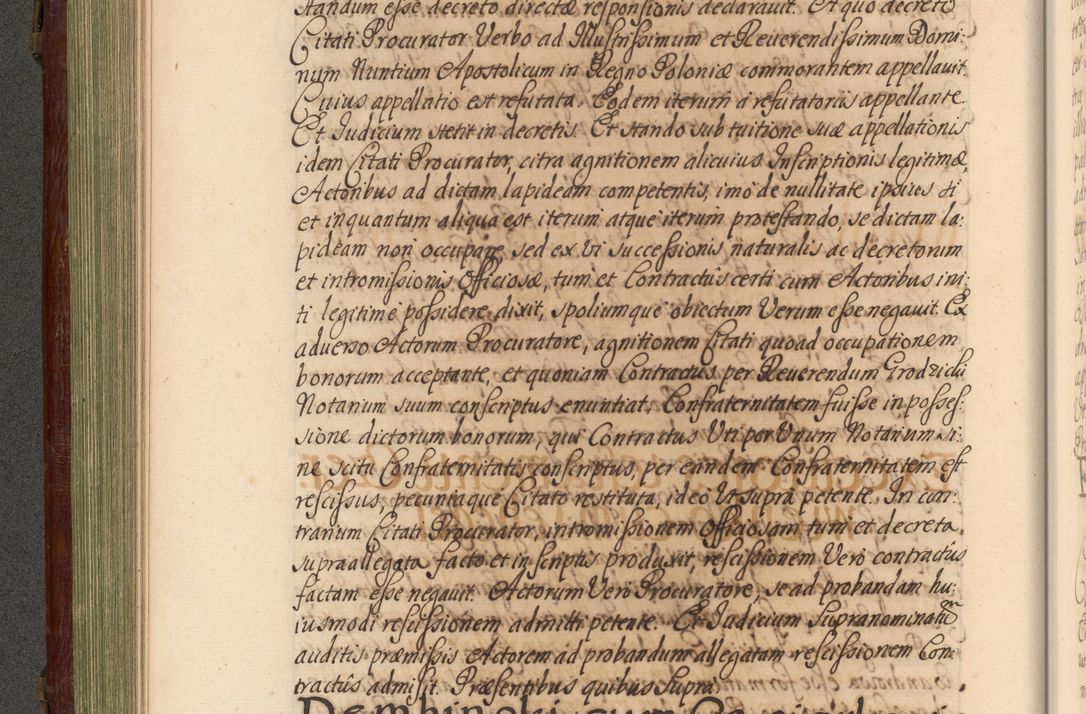 standum esse decreto directæ responsionis declarauit. Et quo decreto
Citati Procurator Verbo ad Illustrissimum et Reuerendissimum Domi:
num Nuntium Apostolicum in Regno Poloniæ commorantem appellauit.
Cuius appellatio est refutata. Eodem iterum à refutatorijs appellante.
Et Judicium stetit in decretis. Et stando sub tuitione suæ appellationis
idem Citati Procurator, citra agnitionem alicuius Inscriptionis legitimæ,
Actoribus ad dictam lapideam competentis, imò de nullitate ipsius si
et inquantum aliqua est iterum atque iterum protestando, se dictam la:
pideam non occupare, sed ex vi successionis naturalis ac decretorum
et intromissionis Officiosæ, tum et Contractûs certi cum Actoribus ini:
ti legitimè possidere dixit, spoliumque obiectum Verum esse negauit. Ex
aduerso Actorum Procuratore, agnitionem Citati quoad occupationem
bonorum acceptante, et quoniam Contractus per Reuerendum Grodzicki
Notarium suum conscriptus enuntiat, Confraternitatem fuisse in posses:
sione dictorum bonorum, qui Contractus Uti per Unum Notarium si:
ne scitu Confraternitatis conscriptus, per eandem Confraternitatem est
rescissus, pecuniaque Citato restituta, ideò Ut supra petente. In con:
trarium Citati Procurator, intromissionem Officiosam tum et decreta
supra allegata facto et in scriptis produxit, rescissionem Verò contractus
factam esse negauit. Actorum Verò Procuratore, se ad probandam hu:
iusmodi rescissionem admitti petente. Et Judicium Supranominatum
auditis præmissis Actorem ad probandum allegatam rescissionem Con:
tractûs admisit. Præsentibus quibus Supra.
Dembinski cum